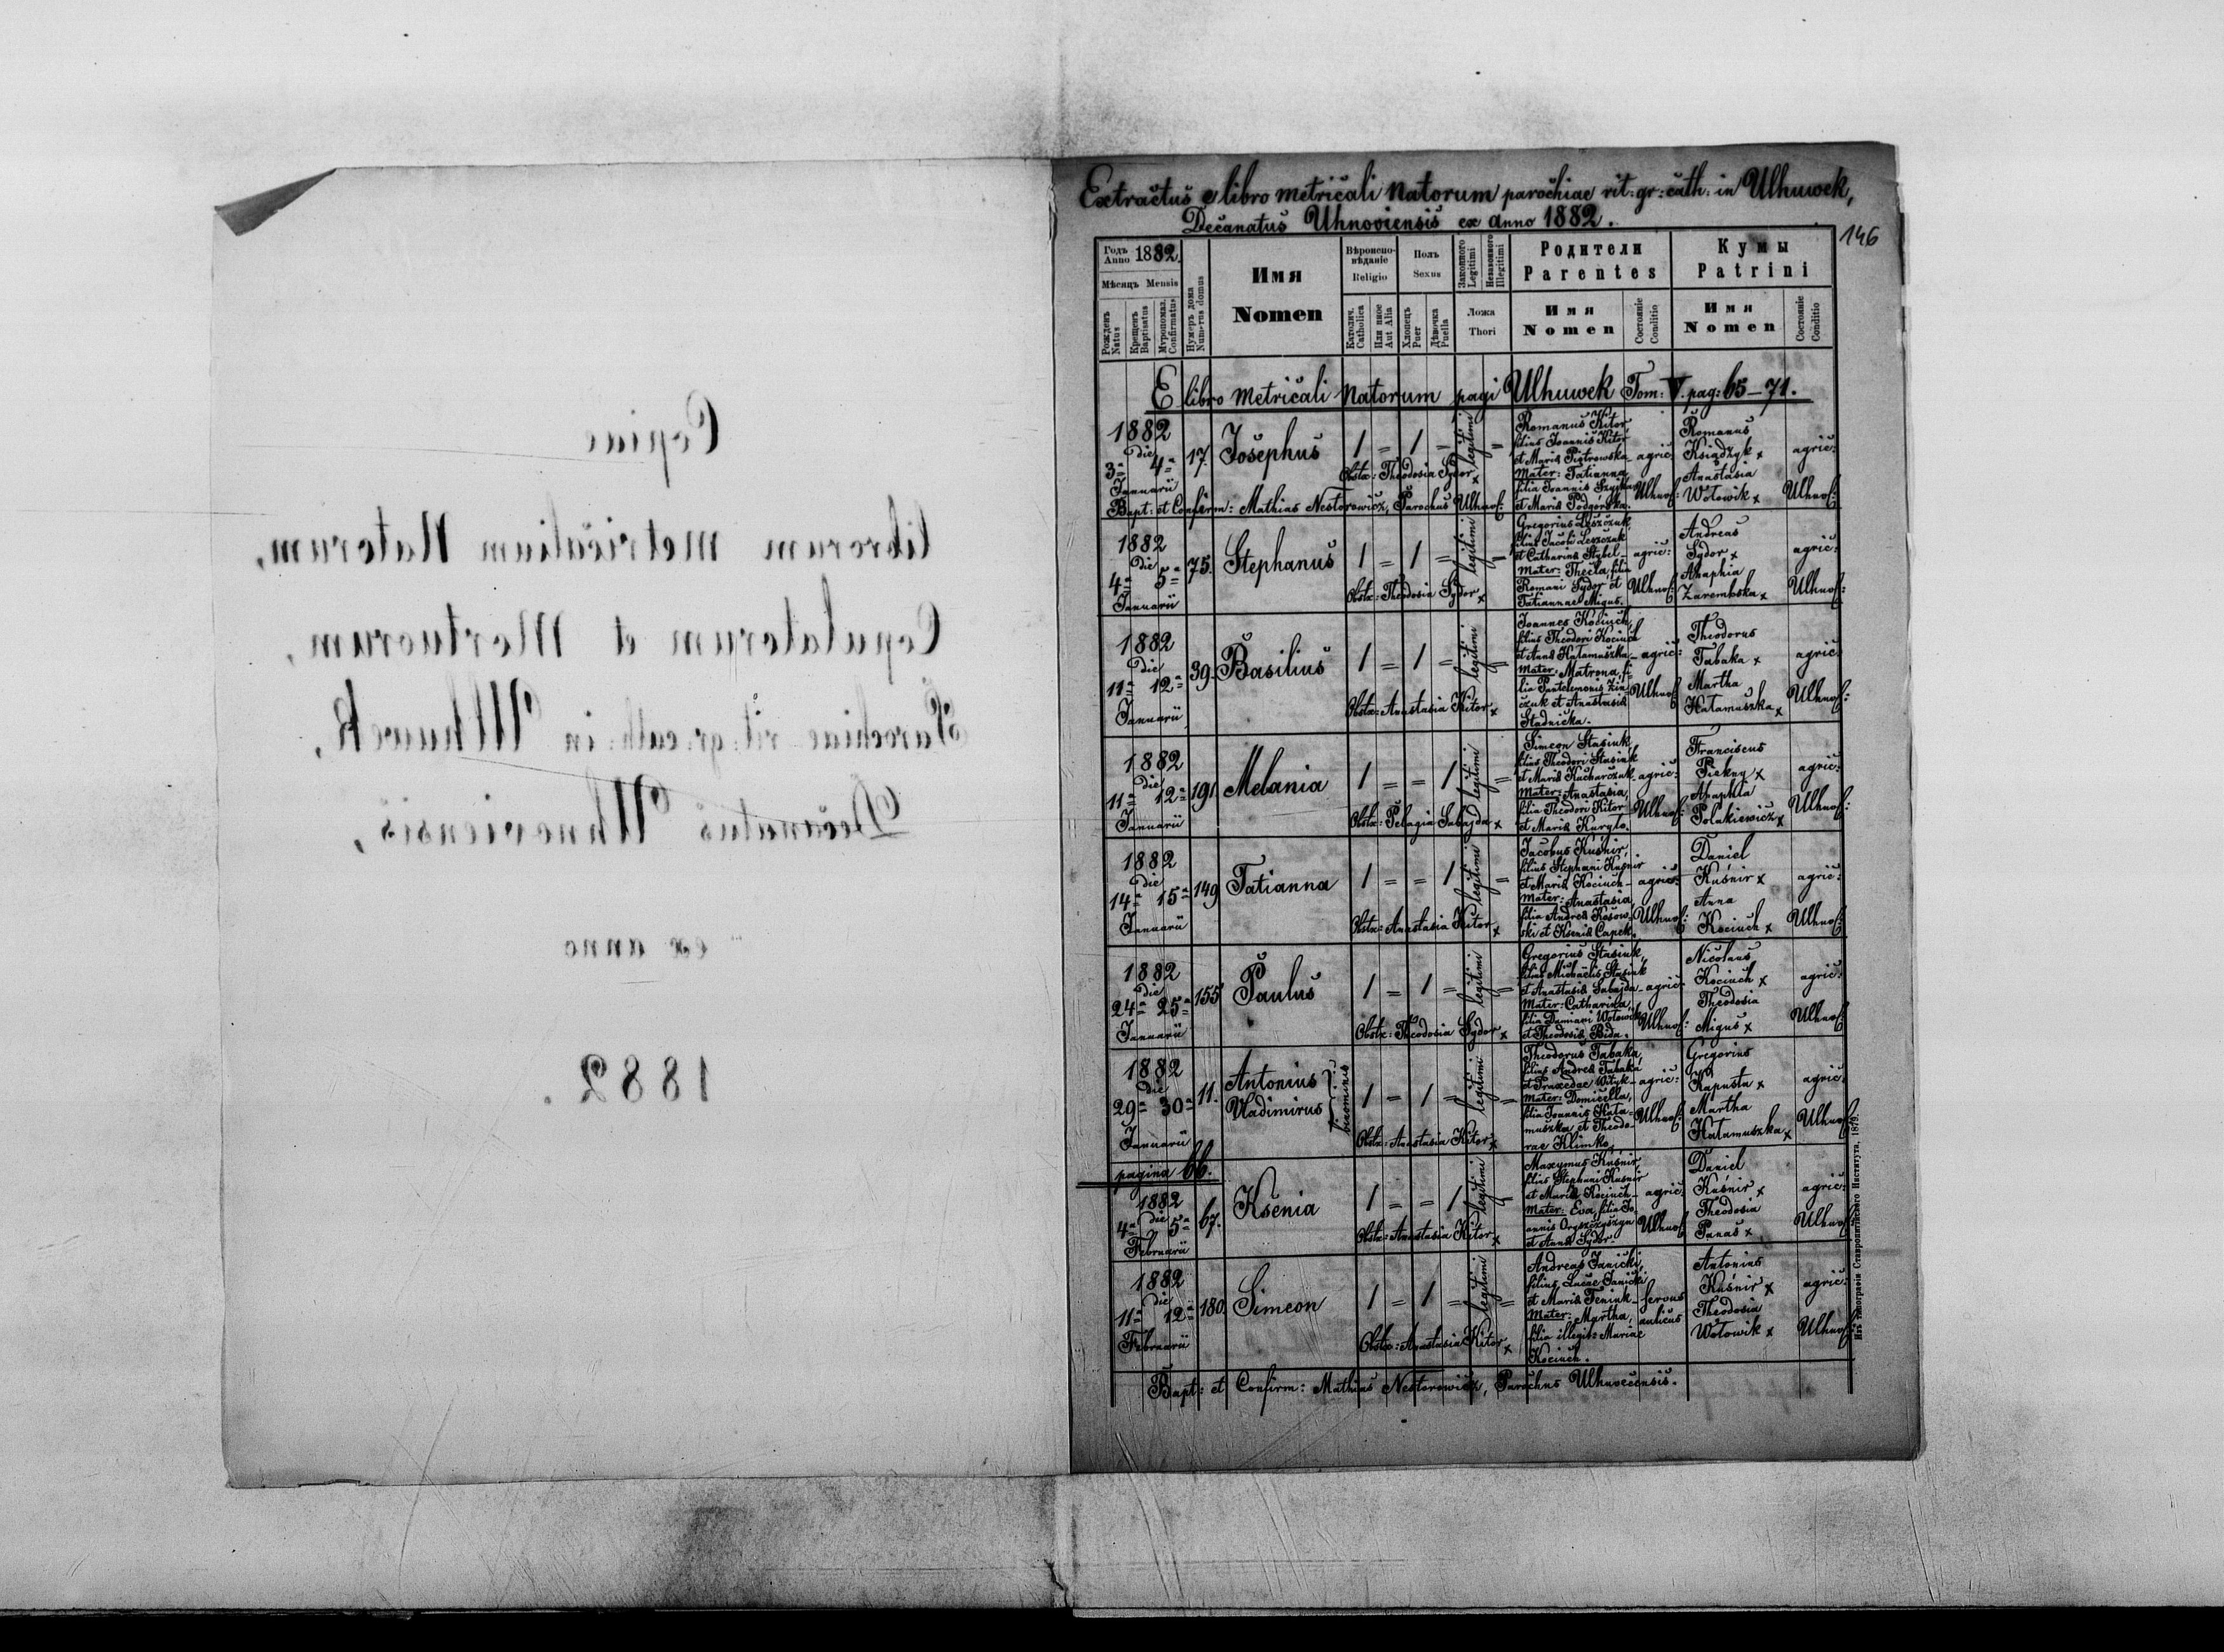 Copiae
librorum metricalium Natorum,
Copulatorum et Mortuorum,
Parochiae rit: gr: cath: in Ulhuwek,
Decanatus Uhnoviensis,
ex anno
1882.
Extractus e libro metricali Natorum parochiae rit: gr: cath: in Ulhuwek,
Decanatus Uhnoviensis ex anno 1882.
146
Годъ Anno 1882.
Мѣсяцъ Mensis
Рожденъ Natus
Крещенъ Baptisatus
Мѵропомаз. Confirmatus
Нумеръ дома Numerus domus
Имя Nomen
Вѣроисповѣданіе Religio
Католич. Catholica
Или иное Aut Alia
Полъ Sexus
Хлопецъ Puer
Дѣвочка Puella
Законного Legitimi
Незаконного Illegitimi
Ложа Thori
Родители Parentes
Имя Nomen
Состояніе Conditio
Кумы Patrini
Имя Nomen
Состояніе Conditio
E libro metricali Natorum pagi Ulhuwek Tom: V. pag: 65–71.
1882 die 3a 4a Januarii
17.
Josephus
1 = 1 = legitimi =
Obstx: Theodosia Sydor x
Romanus Kitor,
filius Joannis Kitor
et Mariae Piotrowska
Mater: Tatianna,
filia Joannis
et Mariae Podgórska.
agric: Ulhuv:
Romanus
Ksiądzyk x
Anastasia
Wołowik x
agric: Ulhuv:
Bapt: et Confirm: Mathias Nestorowicz, Parochus Ulhuv:
1882 die 4a 5a Januarii
75.
Stephanus
1 = 1 = legitimi =
Obstx: Theodosia Sydor x
Gregorius Leszczuk,
filius Jacobi Leszczuk
et Catharinae Stybel
Mater: Thecla, filia
Romani Sydor et
Tatiannae Migus.
agric: Ulhuv:
Andreas
Sydor x
Ahaphia
Zarembska x
agric: Ulhuv:
1882 die 11a 12a Januarii
39.
Basilius
1 = 1 = legitimi =
Obstx: Anastasia Kitor x
Joannes Kociuch,
filius Theodori Kociuch
et Annae Hałamuszka
Mater: Matrona, fi-
lia Pantelemonis
czuk et Anastasiae
Stadnicka.
agric: Ulhuv:
Theodorus
Tabaka x
Martha
Hałamuszka x
agric: Ulhuv:
1882 die 11a 12a Januarii
191.
Melania
1 = = 1 legitimi =
Obstx: Pelagia Sabajda x
Simeon Stasiuk,
filius Theodori Stasiuk
et Mariae Kucharczuk
Mater: Anastasia,
filia Theodori Kitor
et Mariae Kuryło.
agric: Ulhuv:
Franciscus
Piekny x
Ahaphia
Polukiewicz x
agric: Ulhuv:
1882 die 14a 15a Januarii
149
Tatianna
1 = = 1 legitimi =
Obstx: Anastasia Kitor x
Jacobus Kuśnir,
filius Stephani Kuśnir
et Mariae Kociuch
Mater: Anastasia,
filia Andreae Kosow-
ski et Kseniae Capek.
agric: Ulhuv:
Daniel
Kuśnir x
Anna
Kociuch x
agric: Ulhuv:
1882 die 24a 25a Januarii
155
Paulus
1 = 1 = legitimi =
Obstx: Theodosia Sydor x
Gregorius Stasiuk,
filius Michaëlis Stasiuk
et Anastasiae Sabajda
Mater: Catharina,
filia Damiani Wołowik
et Theodosiae Bida.
agric: Ulhuv:
Nicolaus
Kociuch x
Theodosia
Migus x
agric: Ulhuv:
1882 die 29a 30a Januarii
11.
Antonius
Vladimirus } binominis
1 = 1 = legitimi =
Obstx: Anastasia Kitor x
Theodorus Tabaka,
filius Andreae Tabaka
et Praxedae Wityk
Mater: Domicella,
filia Joannis Hała-
muszka et Theodo-
rae Klimko.
agric: Ulhuv:
Gregorius
Kapusta x
Martha
Hałamuszka x
agric: Ulhuv:
pagina 66.
1882 die 4a 5a Februarii
67.
Ksenia
1 = = 1 legitimi =
Obstx: Anastasia Kitor x
Maxymus Kuśnir,
filius Stephani Kuśnir
et Mariae Kociuch
Mater: Eva, filia Jo-
annis Oryszczyszyn
et Annae Sydor.
agric: Ulhuv:
Daniel
Kuśnir x
Theodosia
Panas x
agric: Ulhuv:
1882 die 11a 12a Februarii
180.
Simeon
1 = 1 = legitimi =
Obstx: Anastasia Kitor x
Andreas Janicki,
filius Lucae Janicki
et Mariae Feniuk
Mater: Martha,
filia illegit: Mariae
Kociuch.
servus aulicus
Antonius
Kuśnir x
Theodosia
Wołowik x
agric: Ulhuv:
Bapt: et Confirm: Mathias Nestorowicz, Parochus Ulhuvecensis.
Изъ типографіи Ставропигійского Института, 1879.